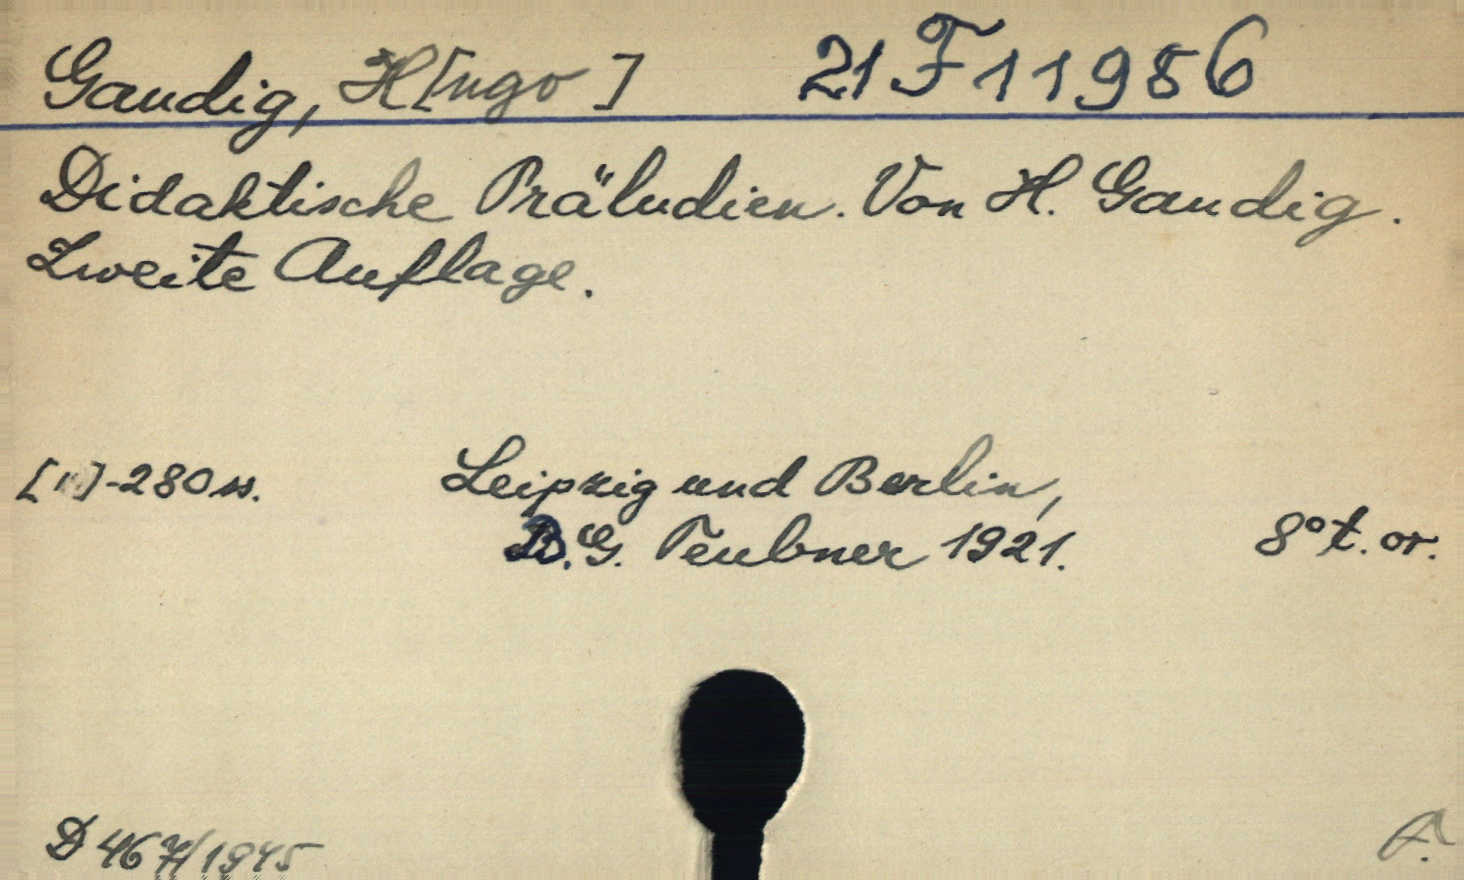 Gaudig, H[ugo] 21 F 11986
Didaktische Präludien. Von H. Gaudig.
Zweite Auflage.
-280 ss. Leipzig und Berlin,
B.G. Teubner 1921. 8° t. or.
D 467/1945